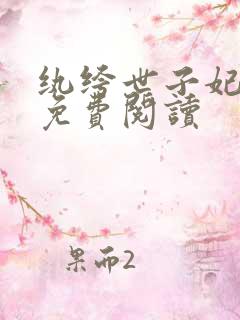 纨绔世子妃
免費閱讀
果而2